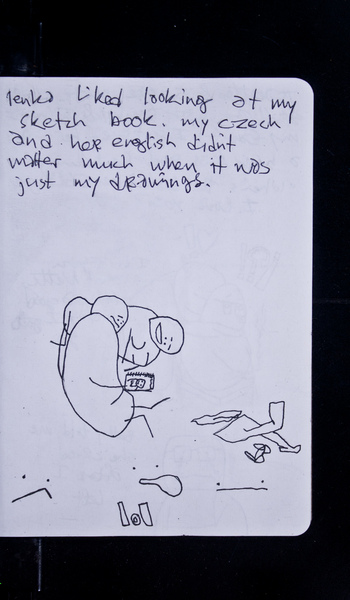 lenka liked looking at my
sketch book. my czech
and her english didnt
matter much when it was
just my drawings.